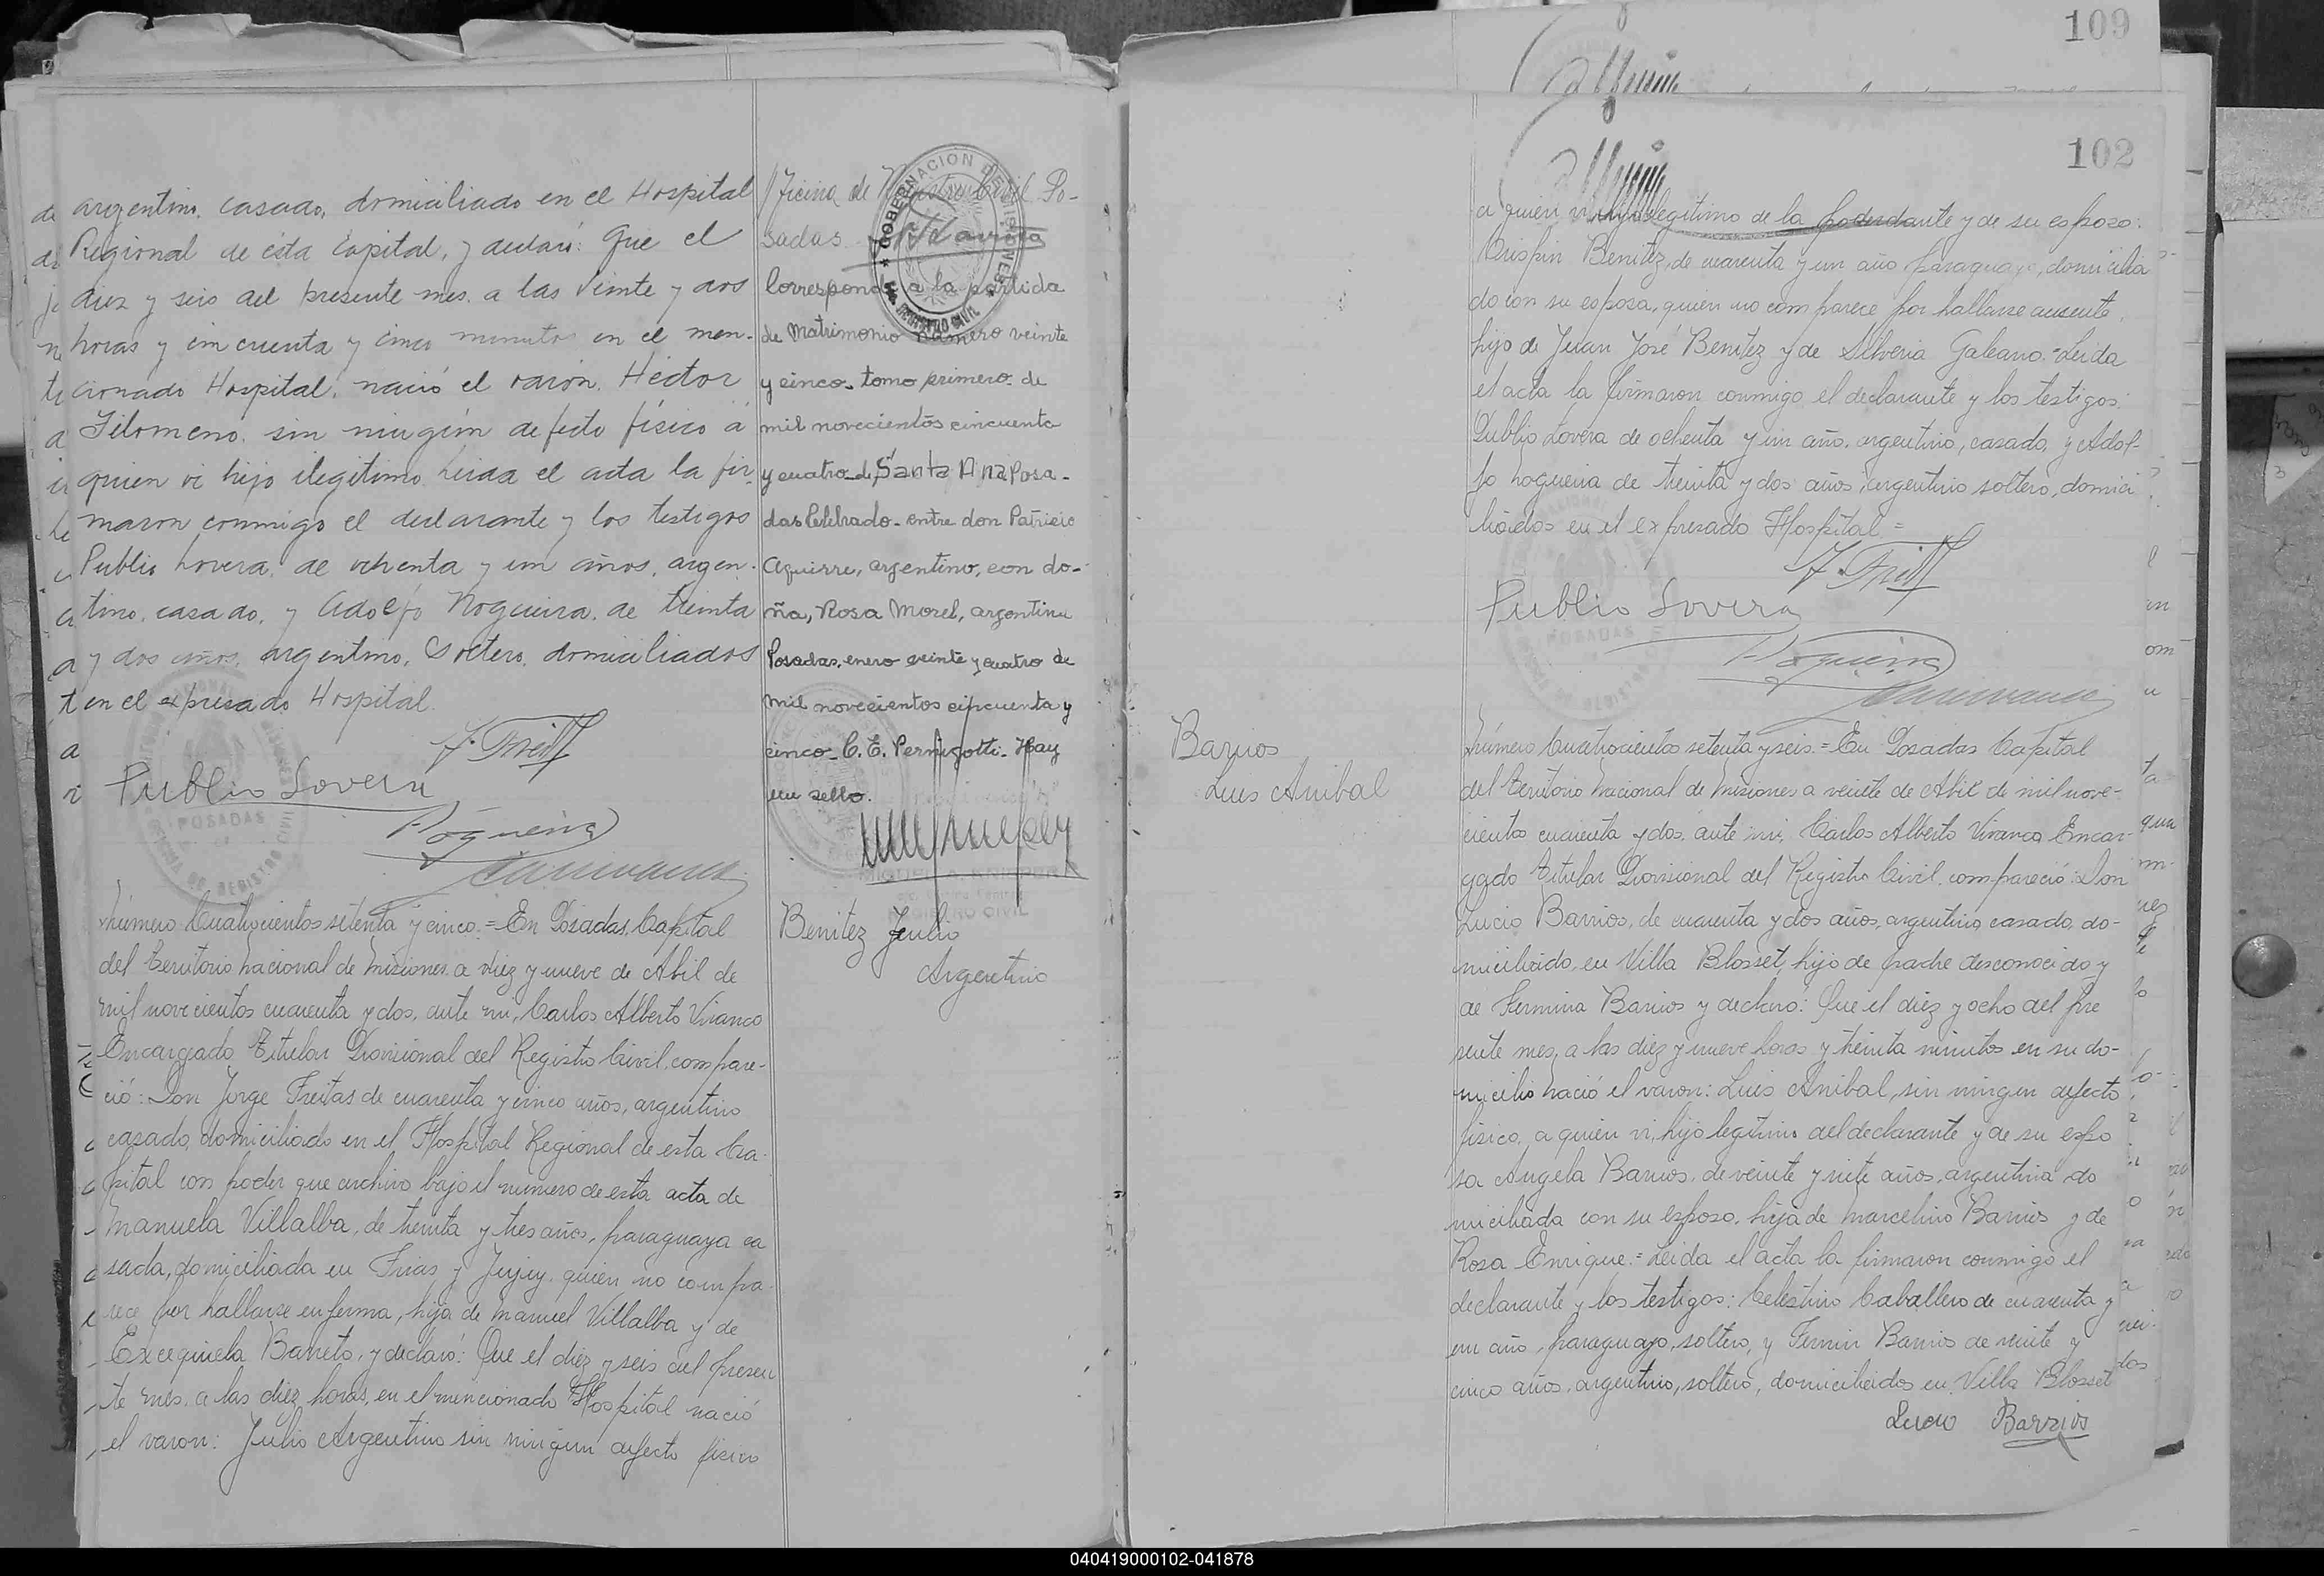 argentino, casado, domiciliado en el Hospital
Regional de ésta Capital, y declaró: Que el
diez y seis del presente mes, a las veinte y dos
horas y cincuenta y cinco minutos en el men-
cionado Hospital, nació el varón, Héctor
Filomeno, sin ningún defecto físico a
quien vi hijo ilegitimo. Leida el acta la fir
maron conmigo el declarante y los testigos
Publio Lovera, de ochenta y un años, argen-
tino, casado, y Adolfo Nogueira, de treinta
y dos años, argentino, soltero, domiciliados
en el expresado Hospital.
Publio Lovera
Nogueira
POSADAS
Oficina de Registro Civil Po-
sadas
Corresponde a la partida
de Matrimonio número veinte
y cinco, tomo primero de
mil novecientos cincuenta
y cuatro de Santa Ana Posa-
das Celebrado entre don Patricio
Aguirre, argentino, con do-
ña, Rosa Morel, argentina
Posadas, enero veinte y cuatro de
mil novecientos cincuenta y
cinco. C. E. Pernigotti. Hay
un sello.
REGISTRO CIVIL
Benitez Julio
Argentino
Número Cuatrocientos setenta y cinco = En Posadas, Capital
del Territorio Nacional de Misiones a diez y nueve de Abril de
mil novecientos cuarenta y dos, ante mi, Carlos Alberto Vivanco
Encargado Titular Provisional del Registro Civil, compare-
ció: Don Jorge Freitas de cuarenta y cinco años, argentino
casado, domiciliado en el Hospital Regional de esta Ca-
pital con poder que archivo bajo el numero de esta acta de
Manuela Villalba, de treinta y tres años, paraguaya ca
sada, domiciliada en Frias y Jujuy, quien no compa-
rece por hallarse enferma, hija de Manuel Villalba y de
Exequiela Barreto, y declaró: Que el diez y seis del presen
te mes, a las diez horas, en el mencionado Hospital nació
el varon: Julio Argentino sin ningun defecto fisico
109
102
a quien vi, hijo legitimo de la poderdante y de su esposo:
Crispin Benitez, de cuarenta y un año, paraguayo, domicilia
do con su esposa, quien no comparece por hallarse ausente,
hijo de Juan José Benitez y de Silveria Galeano = Leida
el acta la firmaron conmigo el declarante y los testigos:
Publio Lovera de ochenta y un año, argentino, casado, y Adol-
fo Nogueira de treinta y dos años, argentino soltero, domici
liados en el expresado Hospital =
Publio Lovera
Nogueira
POSADAS
Barrios
Luis Anibal
Número Cuatrocientos setenta y seis = En Posadas Capital
del Territorio Nacional de Misiones a veinte de Abril de mil nove-
cientos cuarenta y dos, ante mi, Carlos Alberto Vivanco Encar-
gado Titular Provisional del Registro Civil, compareció: Don
Lucio Barrios, de cuarenta y dos años, argentino casado, do-
miciliado, en Villa Blosset, hijo de padre desconocido y
de Fermina Barrios y declaro: Que el diez y ocho del pre
sente mes, a las diez y nueve horas y treinta minutos en su do-
micilio nació el varon: Luis Anibal, sin ningun defecto
fisico, a quien vi, hijo legitimo del declarante y de su espo
sa Angela Barrios, de veinte y siete años, argentina do
miciliada con su esposo, hija de Marcelino Barrios y de
Rosa Enrique = Leida el acta la firmaron conmigo el
declarante y los testigos: Celestino Caballero de cuarenta y
un año, paraguayo, soltero, y Fermin Barrios de veinte y
cinco años, argentino, soltero, domiciliados en Villa Blosset
Lucio Barrios
040419000102-041878